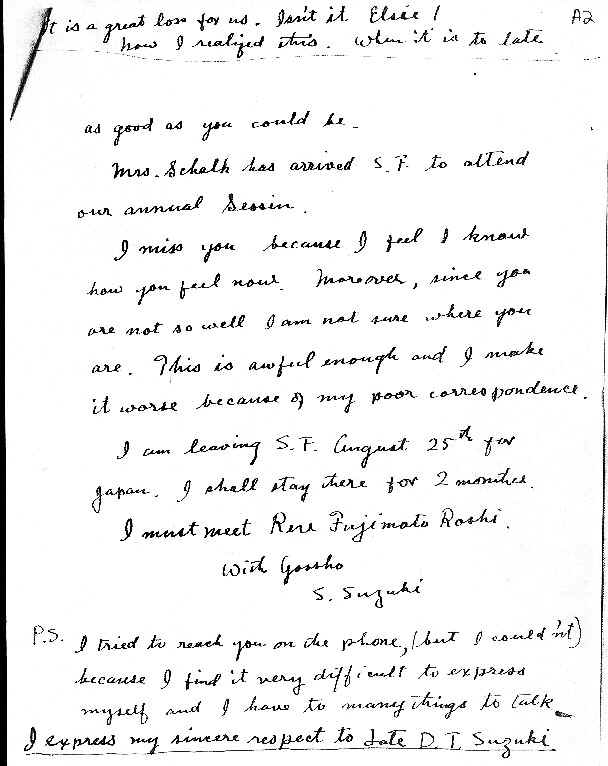 It is a great loss for us. Isn't it Elsie!
A2
how I realized this. When it is to late
as good as you could be.
Mrs. Schalk has arrived S.F. to attend
our annual Sessin.
I miss you because I feel I know
how you feel now. Moreover, since you
are not so well I am not sure where you
are. This is awful enough and I make
it worse because of my poor correspondence.
I am leaving S.F. August 25th for
Japan. I shall stay there for 2 months.
I must meet Rere Fujimoto Roshi.
With Gassho
S. Suzuki
P.S. I tried to reach you on the phone, (but I could'nt)
because I find it very difficult to express
myself and I have to many things to talk
I express my sincere respect to late D. T. Suzuki